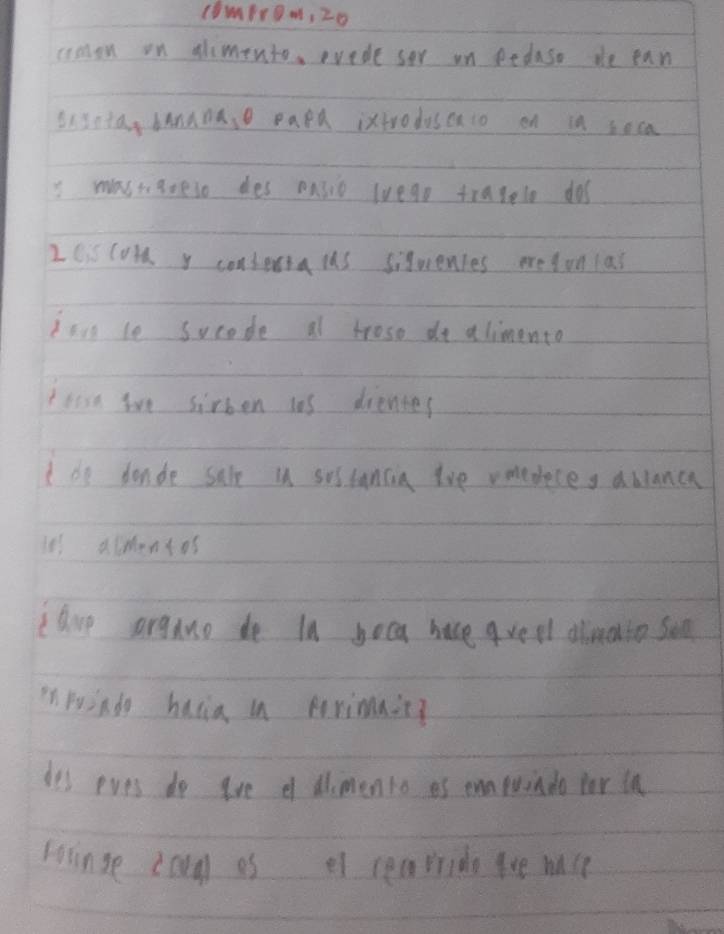 comprom,20
comen un alimento, puede ser un pedaso de pan
banana, o papa introduscalo en la boca
y mastiquelo des pasio luego tragelo dos
2 discuta y contesta las siguientes preguntas
¿que le sucede al troso de alimento
¿para que sirben los dientes
¿de donde sale la sustancia que umedece y ablanca
los alimentos
¿que organo de la boca hace que el alimato sea
enpujado hacia la
des pues de que el alimento es empujado por la
foringe ¿cual es el recorrido que hace